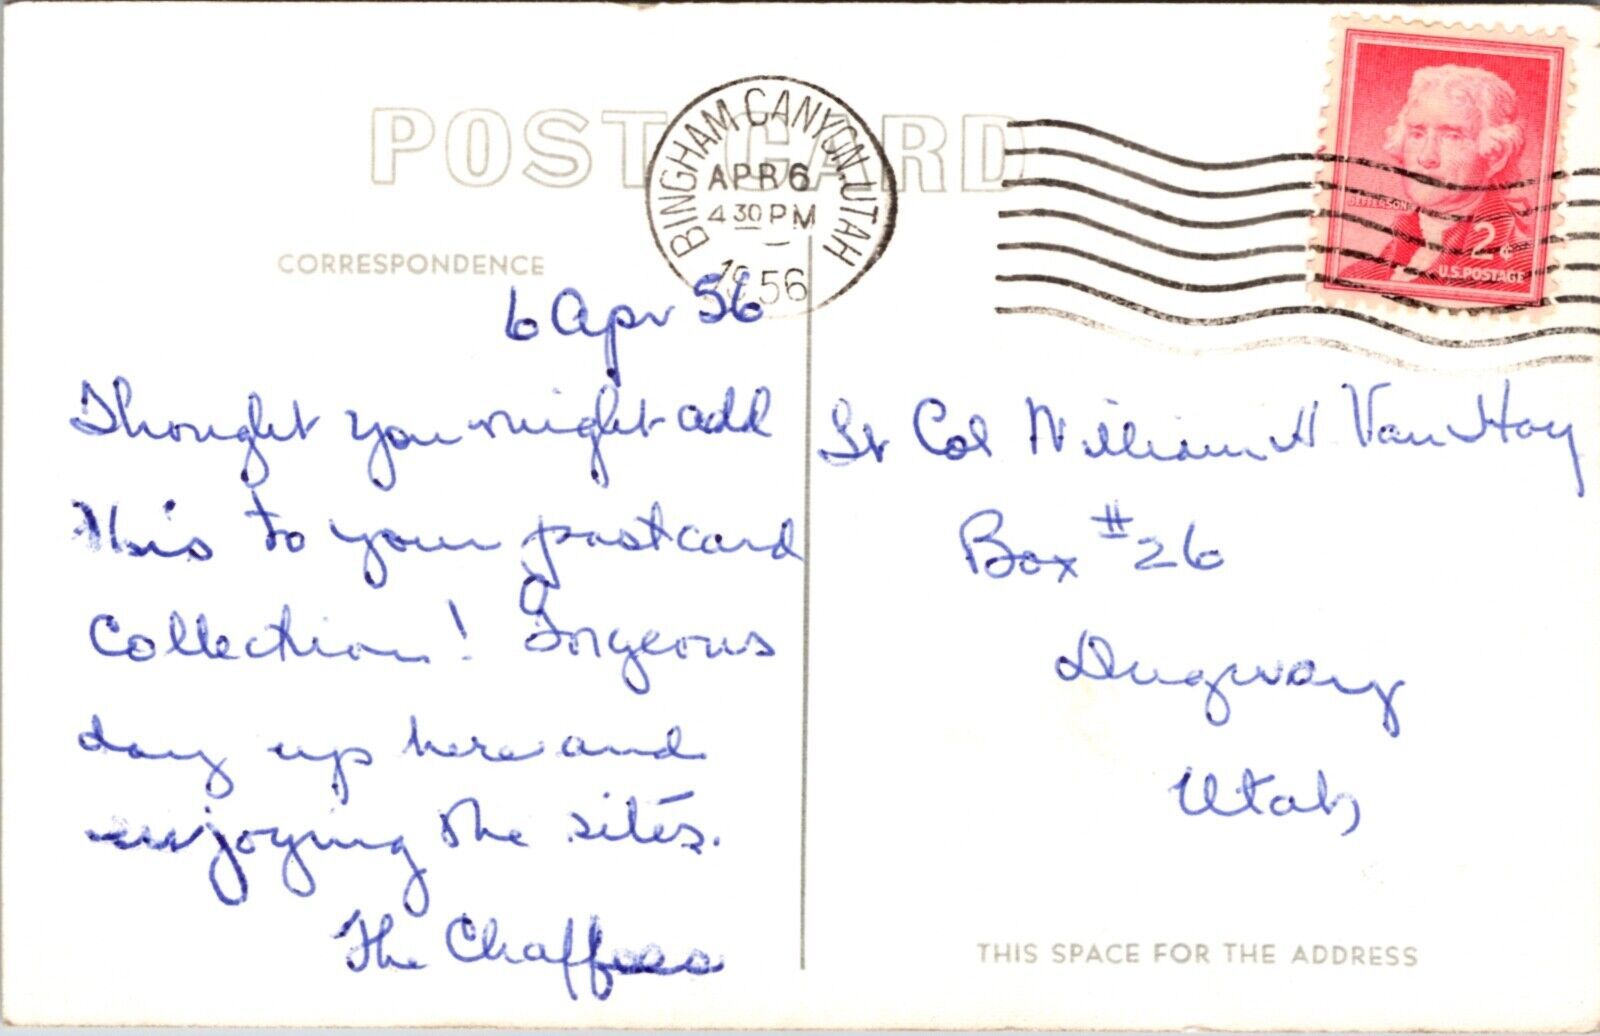 POST CARD
BINGHAM CANYON, UTAH
APR 6
4 30 PM
1956
JEFFERSON
2¢
U.S. POSTAGE
CORRESPONDENCE
6 Apr 56
Thought you might add
this to your postcard
Collection! Gorgeous
day up here and
enjoying the sites.
The Chaffees
Lt Col William H Van Hoy
Box #26
Dugway
Utah
THIS SPACE FOR THE ADDRESS